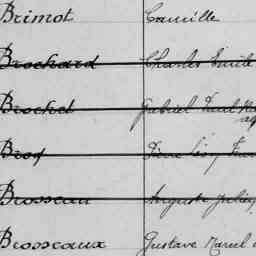 Brimot Camille
Brochard Charles Emile
Brochet Gabriel Paul
Broq Pierre Léon
Brosseau Auguste Julien
Brosseaux Gustave Marcel